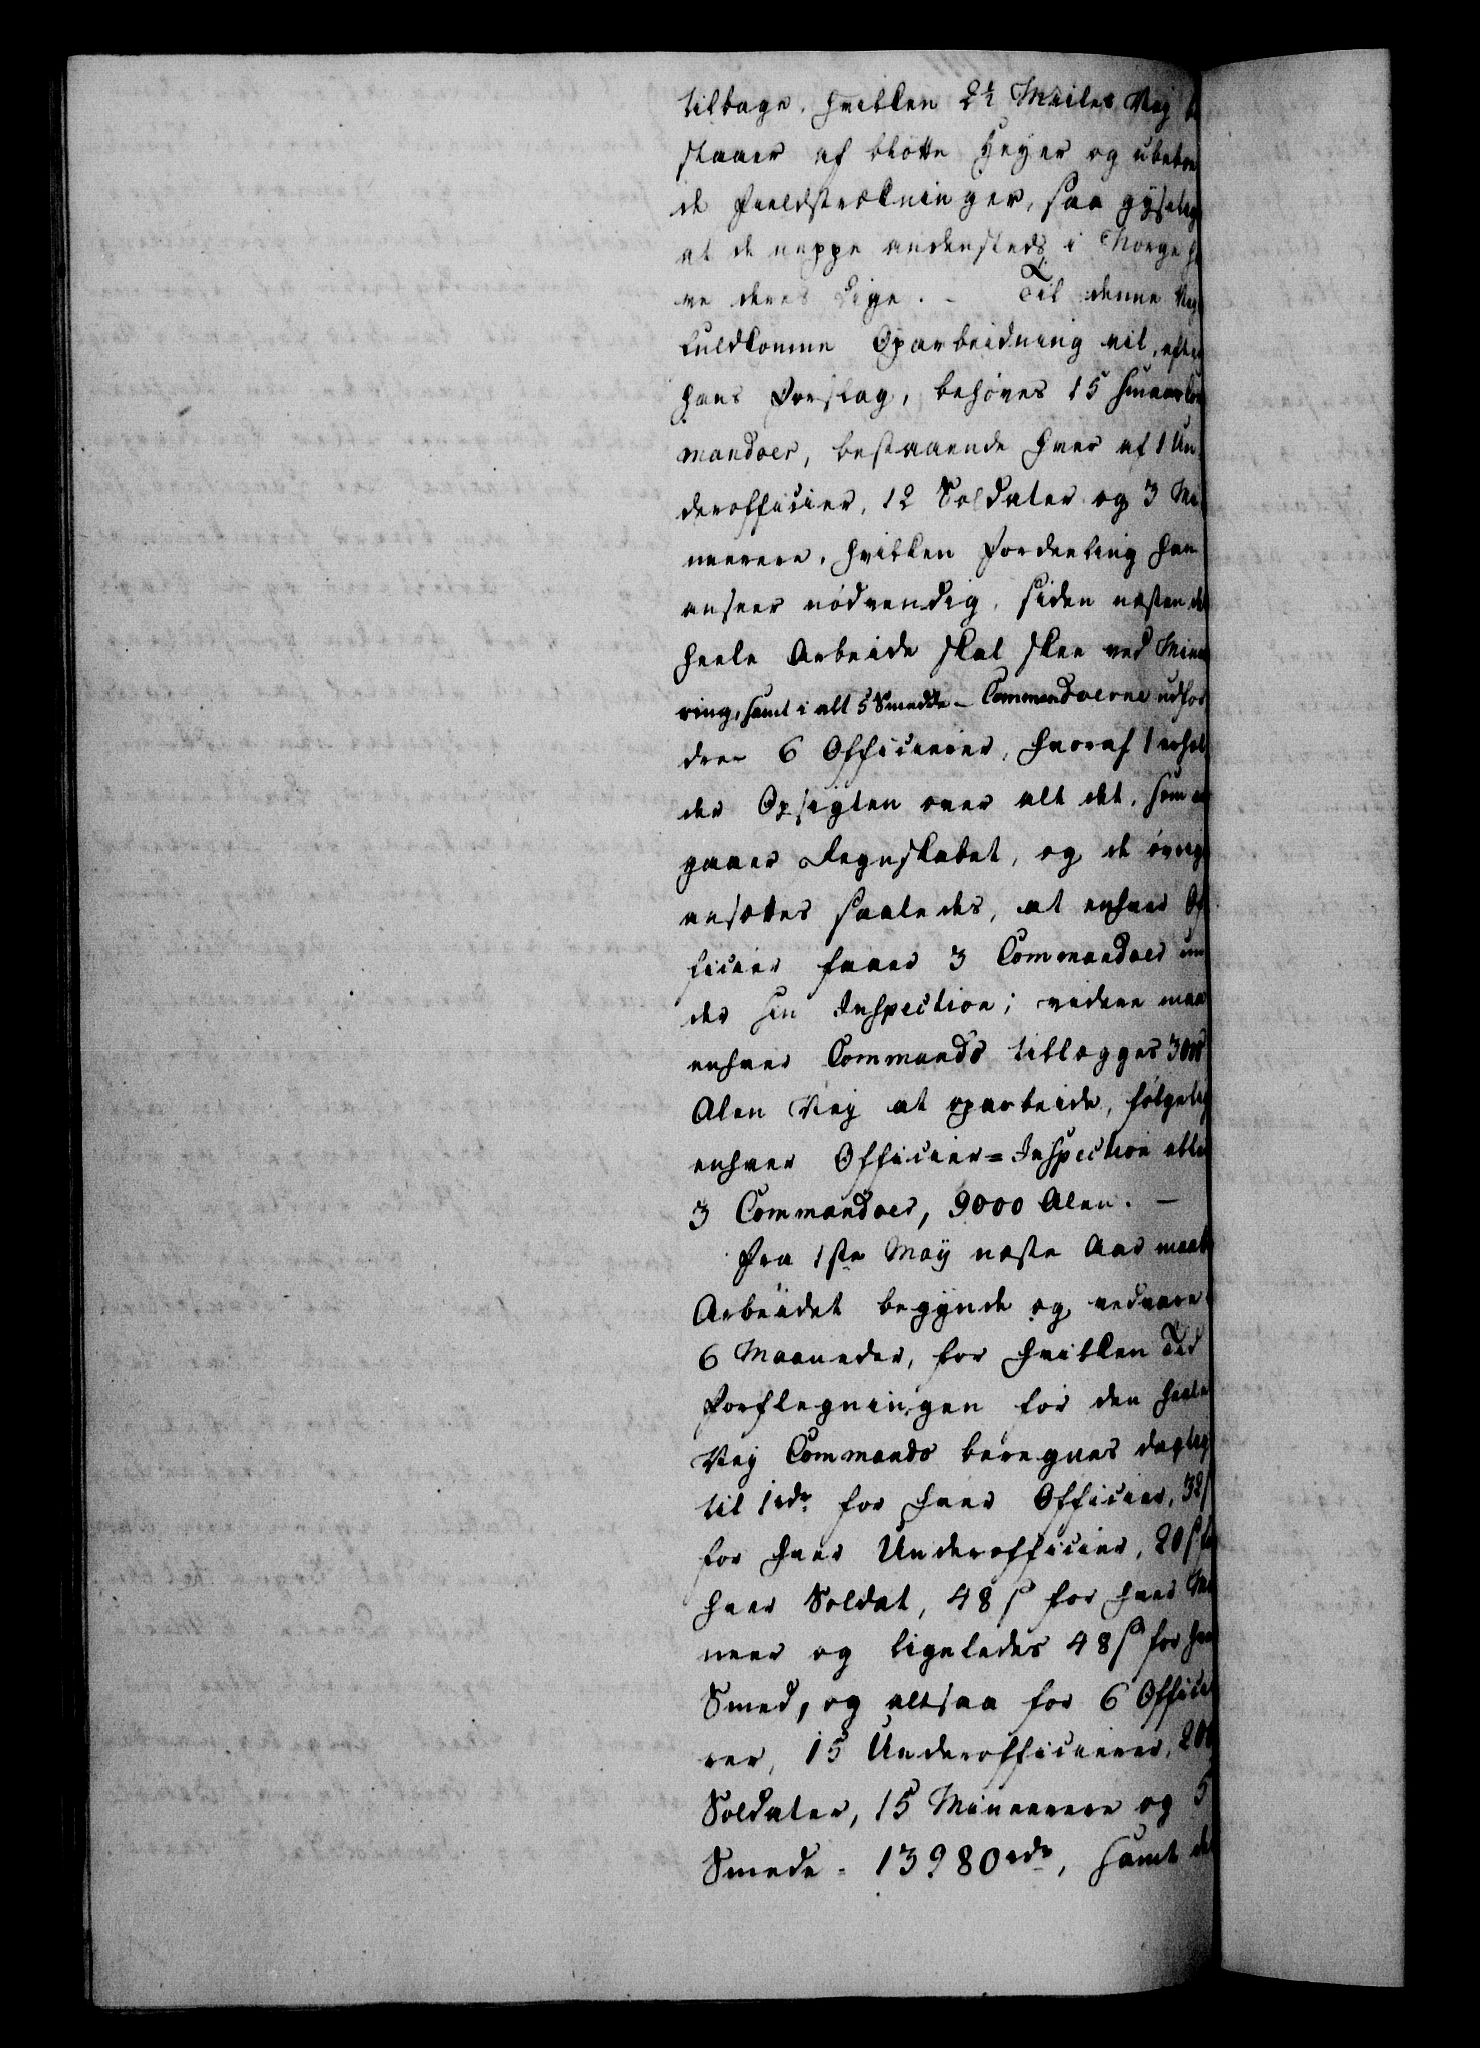 tilbage. hvilken 2½ Miiles Vej be
staaer af blotte Heyer og ubeboe
de Fieldstrækninger, saa gyselig
at de neppe andensteds i Norge ha
ve deres Lige. - Til denne Vejs
fuldkomne Oparbeidning vil, efter
hans Forslag, behøves 15 smaa Com
mandoer, bestaaende hver af 1 Un-
derofficier, 12 Soldater og 3 Mi
neerere, hvilken Fordeeling han
anseer nødvendig, siden næsten det
heele Arbeide skal skee ved Minee
ring, samt i alt 5 Smedde - Commandoerne udfor
dre 6 Officierer, hvoraf 1 erhol
der Opsigten over alt det, som an
gaaer Regnskabet, og de øvrige
ansættes saaledes, at enhver Of
ficier faaer 3 Commandoer un
der sin Inspection; videre maa
enhver Commando tillægges 3000
Alen Vej at oparbeide, følgelig
enhver Officier=Inspection eller
3 Commandoer, 9000 Alen. -
Fra 1ste Maij næste Aar maatte
Arbeidet begynde og vedvare
6 Maaneder, for hvilken Tid
Forflegningen for den heele
Vej Commando beregnes daglig
til 1 rdr for hver Officier, 32 s
for hver Underofficier, 20 s for
hver Soldat, 48 s for hver Mi
neer og ligeledes 48 s for hver
Smed, og altsaa for 6 Officie
rer, 15 Underofficierer, 200
Soldater, 15 Mineerere og 5
Smede - 13980 rdr, samt de